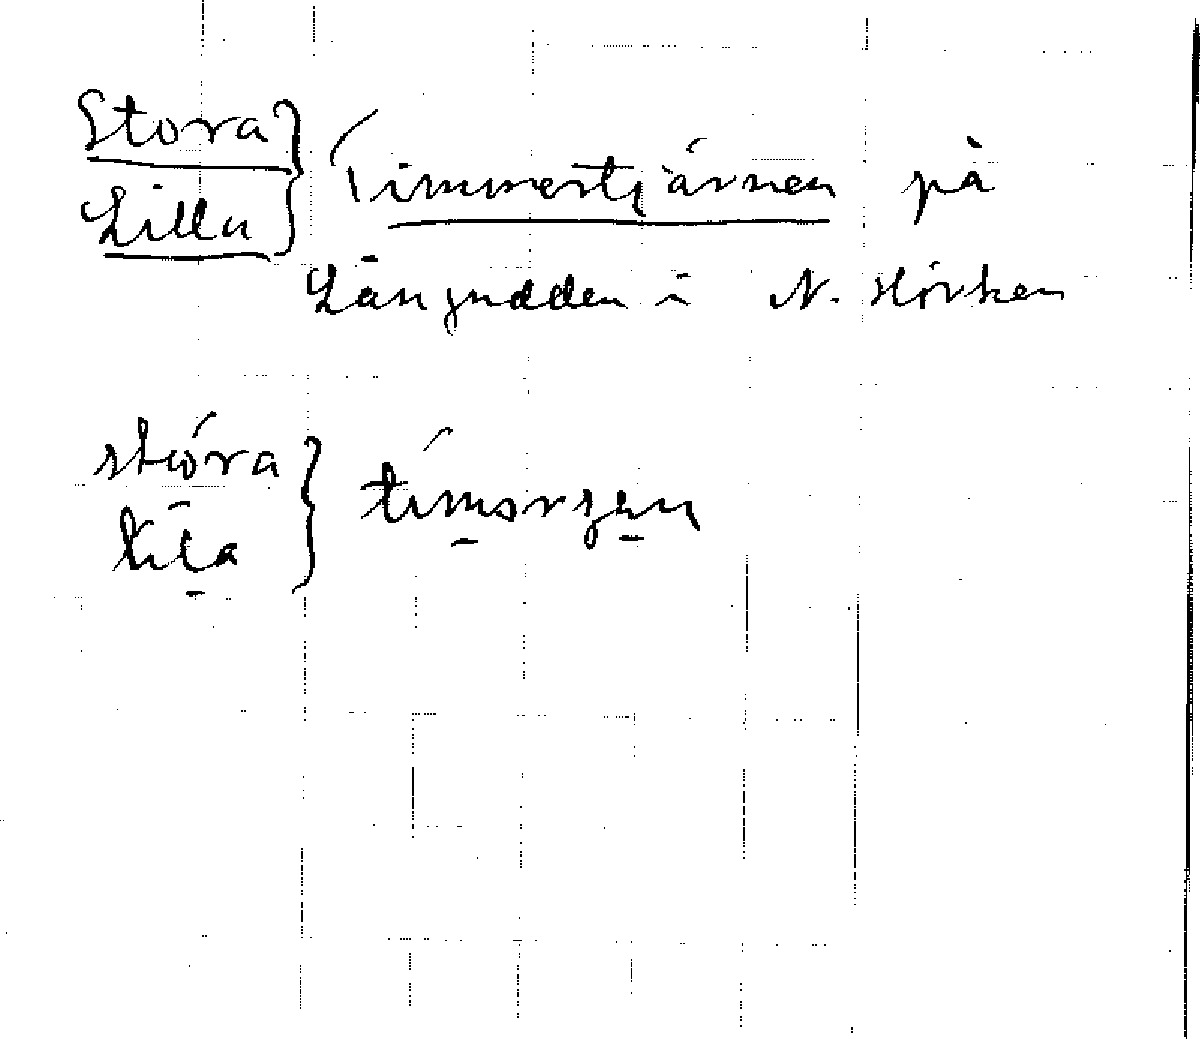 Stora } Timmertjärnen på
Lilla
Långudden i N. Hörken
stóra } timərʒən
lila